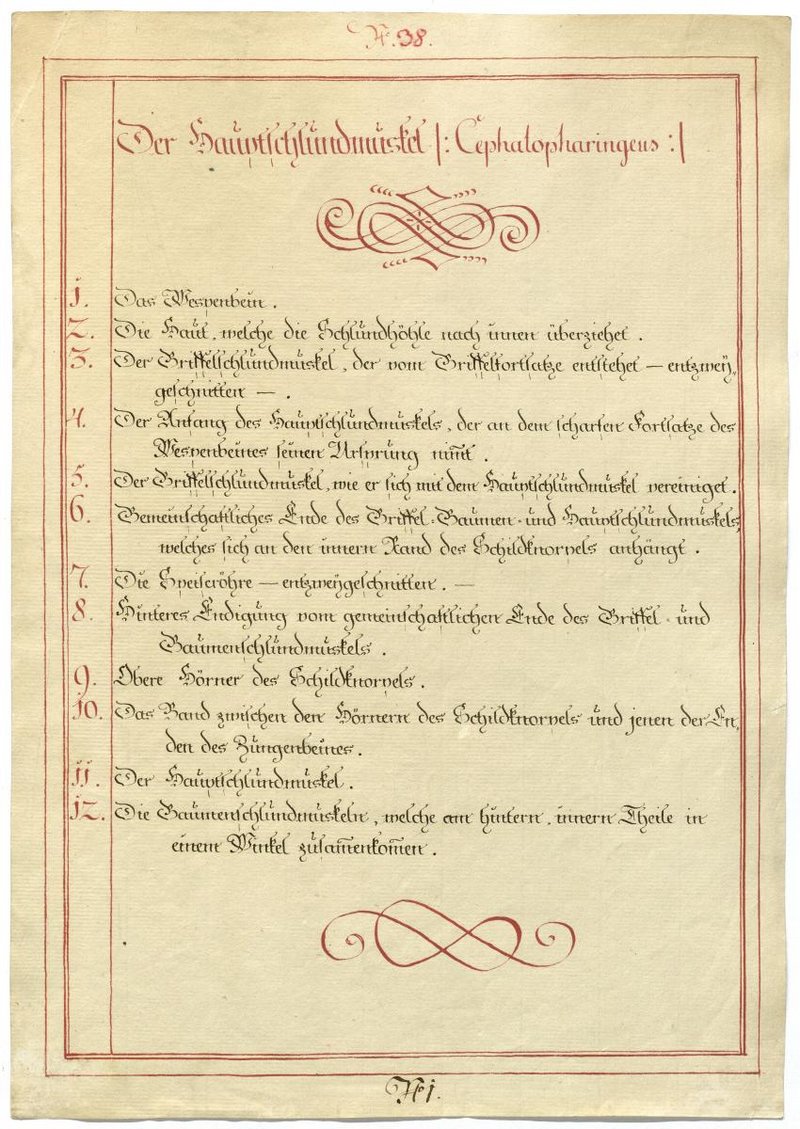 Nº. 38.
Der Hauptschlundmuskel /: Cephalopharingeus :/
1. Das Wespenbein.
2. Die Haut, welche die Schlundhöhle nach innen überziehet.
3. Der Griffelschlundmuskel, der vom Griffelfortsatze entstehet — entzwey-
geschnitten —.
4. Der Anfang des Hauptschlundmuskels, der an dem scharfen Fortsatze des
Wespenbeines seinen Ursprung nim̅t.
5. Der Griffelschlundmuskel, wie er sich mit dem Hauptschlundmuskel vereiniget.
6. Gemeinschaftliches Ende des Griffel-Gaumen- und Hauptschlundmuskels,
welches sich an den innern Rand des Schildknorpels anhängt.
7. Die Speiseröhre — entzweygeschnitten. —
8. Hinteres Endigung vom gemeinschaftlichen Ende des Griffel- und
Gaumenschlundmuskels.
9. Obere Hörner des Schildknorpels.
10. Das Band zwischen den Hörnern des Schildknorpels und jenen der En-
den des Zungenbeines.
11. Der Hauptschlundmuskel.
12. Die Gaumenschlundmuskeln, welche am hintern, innern Theile in
einem Winkel zusam̅enkom̅en.
Nº 1.